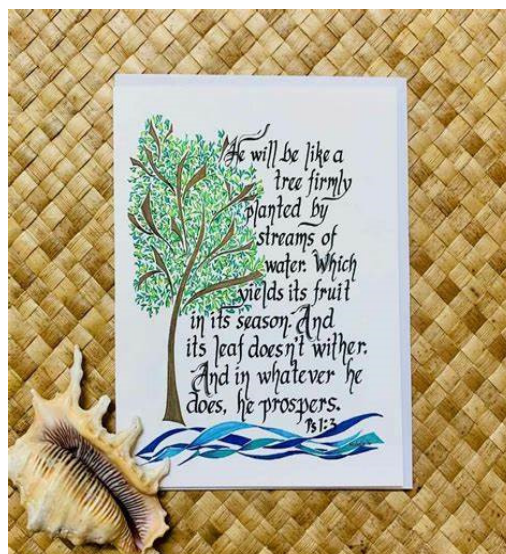 He will be like a
tree firmly
planted by
streams of
water. Which
yields its fruit
in its season. And
its leaf doesn't wither.
And in whatever he
does, he prospers.
Ps 1:3